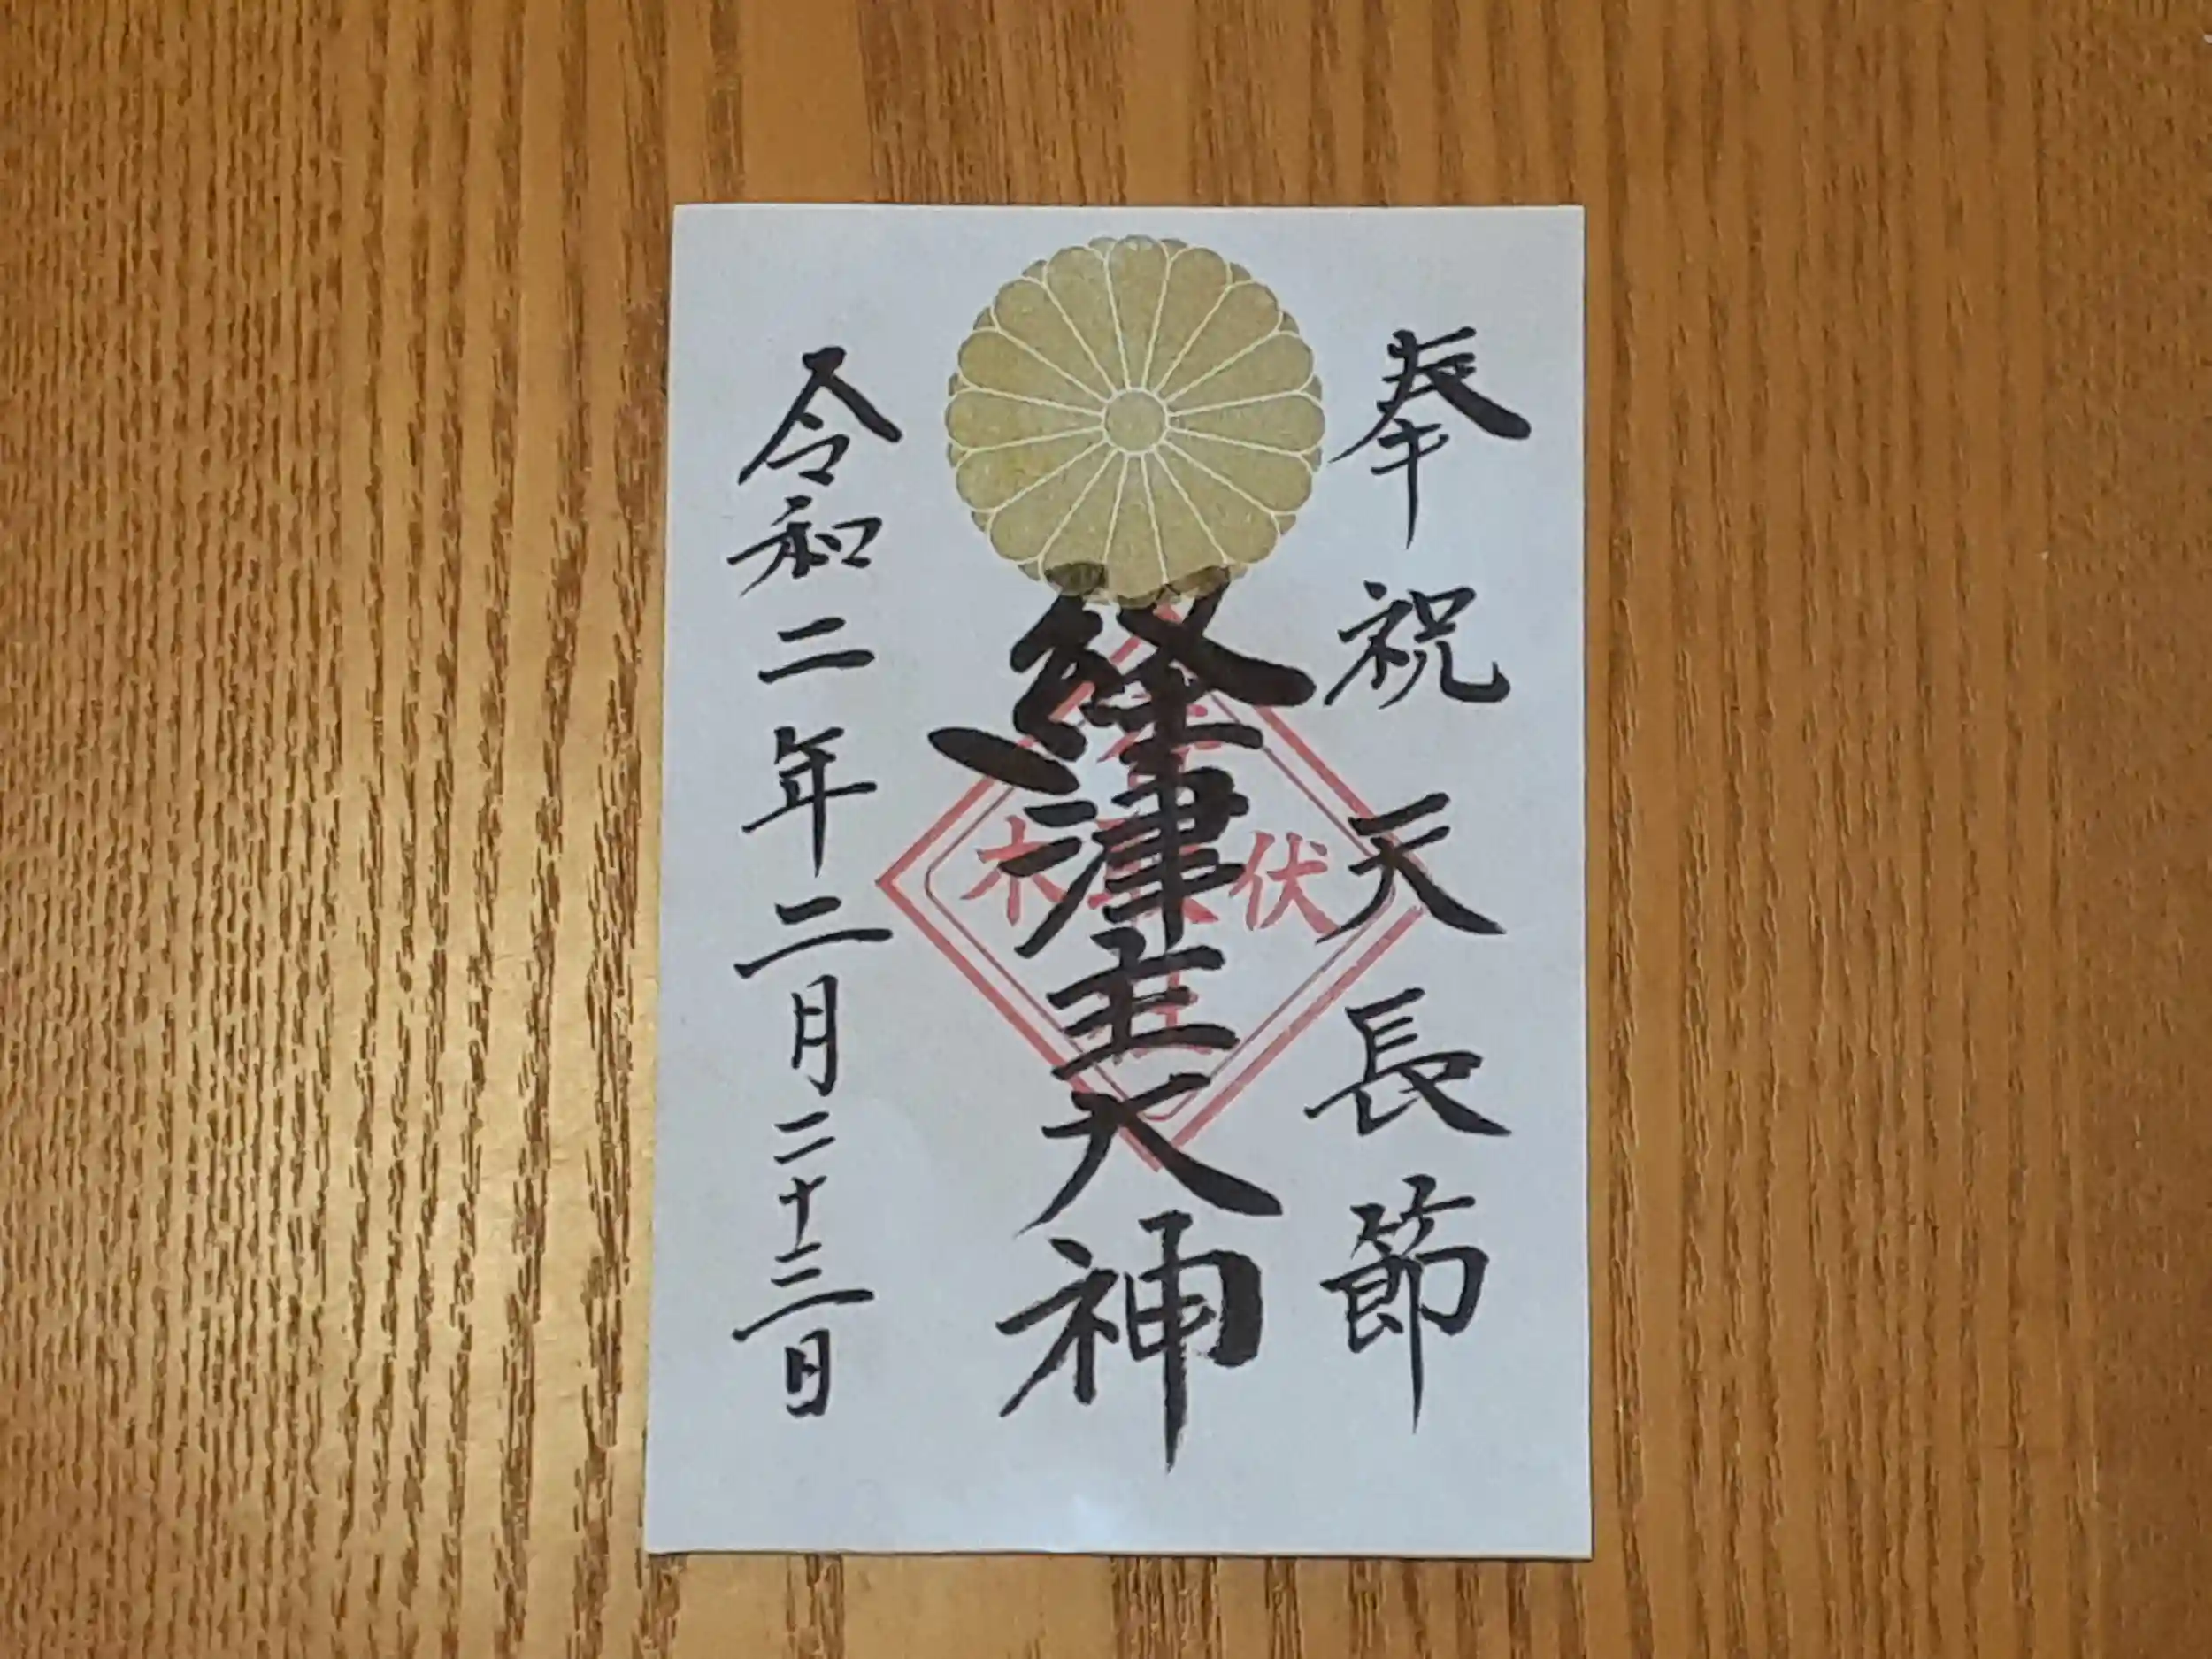 奉祝天長節
経津主大神
令和二年二月二十三日
木 伏